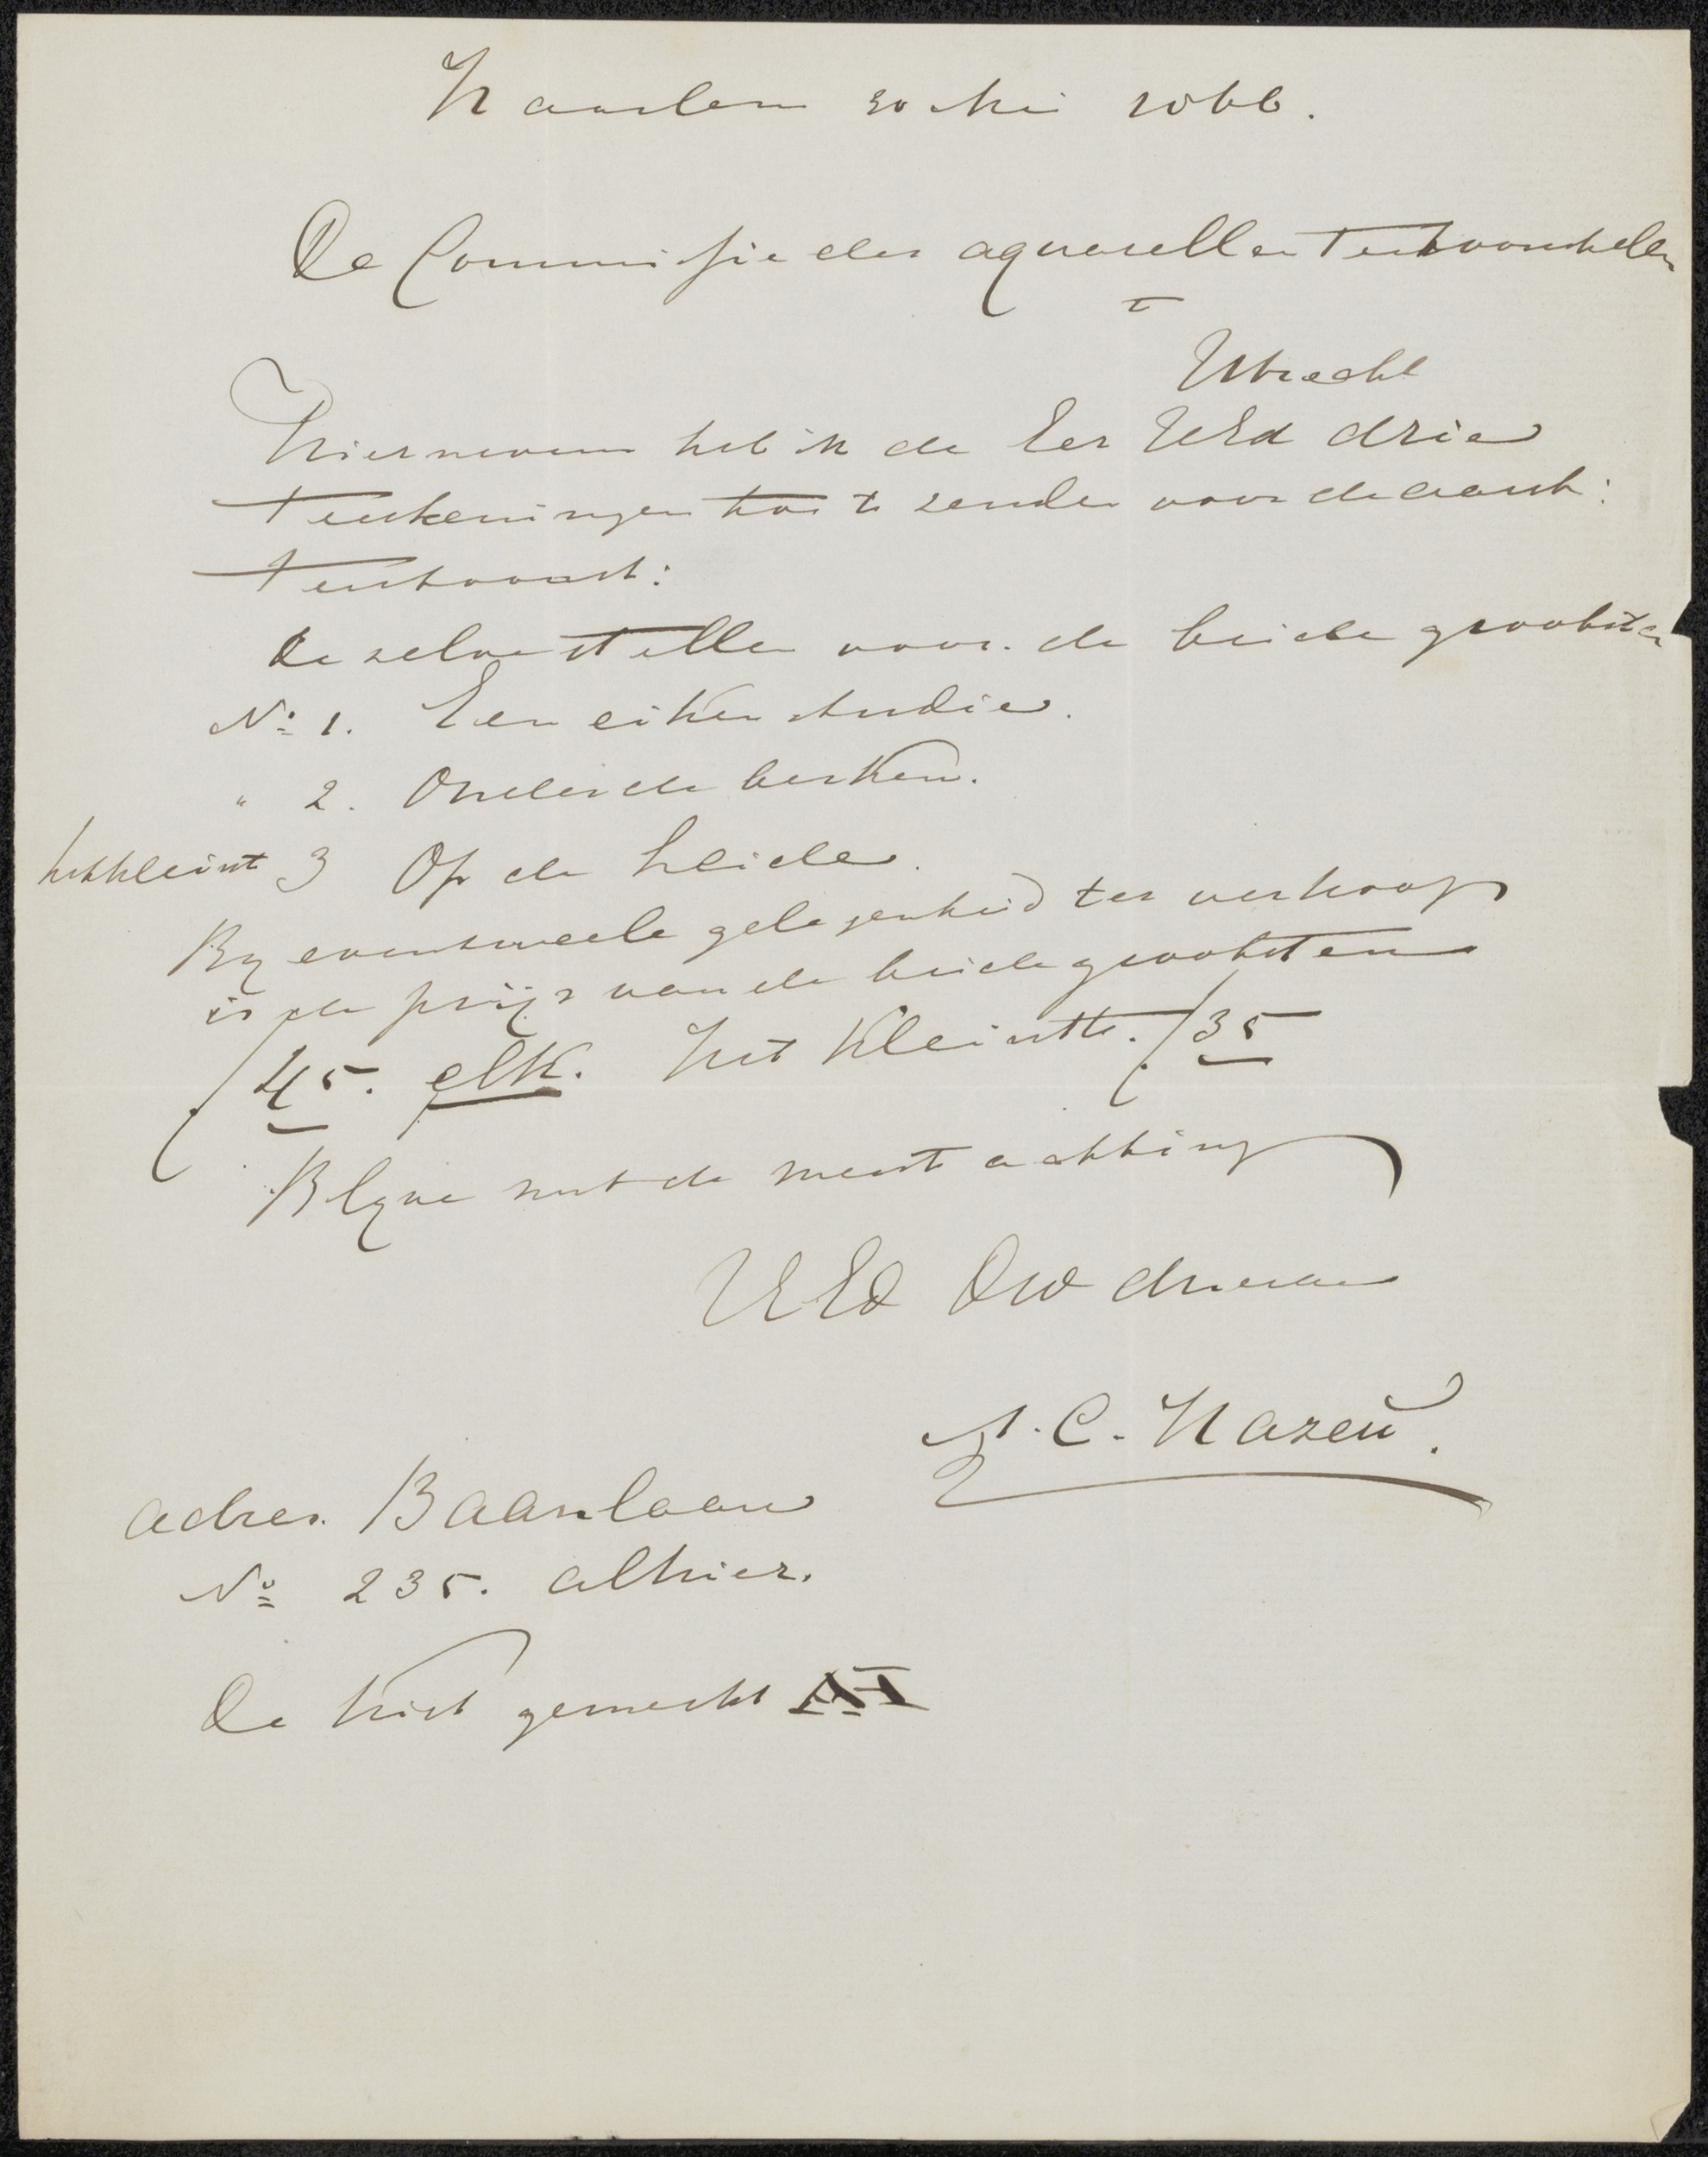 Haarlem 20 Mei 1866.
De Commissie der aquarellen Tentoonstellen
T
Utrecht
Hiernevens heb ik de Eer UEd drie
Teekeningen toe te zenden voor de aanst:
Tentoonst:
De zelve stellen voor. de beide grootsten
No 1. Een eiken studie.
" 2. Onder de berken.
het kleinst 3 Op de heide.
By eventueele gelegenheid ter verkoop
is de prijs van de beide grootsten
f 45. elk. het kleinste. f 35
Blyve met de meest achting
UEd Dw dienaar
A. C. Hazeu.
adres. Baanlaan
No 235. alhier.
De kist gemerkt